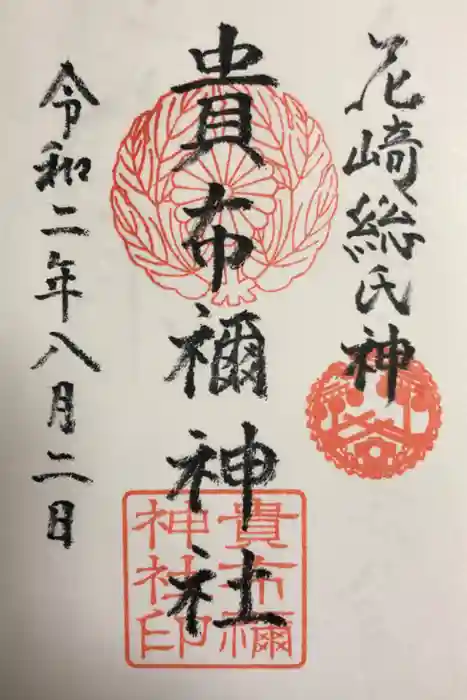 花崎総氏神
貴布禰神社
令和二年八月二日
貴布禰
神社印